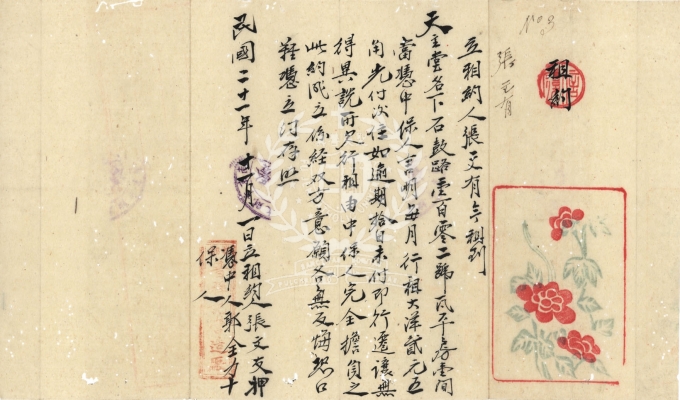 租約
張文有
立租約人張文有今租到
天主堂名下石鼓路壹百零二號瓦平房壹間
當憑中保人言明每月行租大洋貳元五
角先付次住如逾期拾日未付即行遷讓無
得異說所欠行租由中保人完全擔負之
此約成立係經双方意願各無反悔恐口
難憑立約存照
民國二十一年十一月一日立租約人張文友押
憑中人郭金
保人